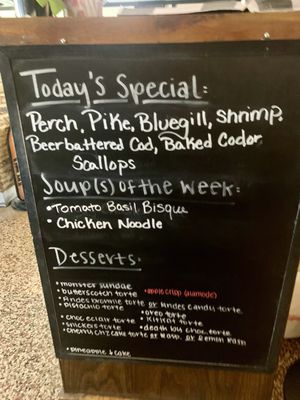 Today's Special:
Perch, Pike, Bluegill, Shrimp,
Beer battered Cod, Baked Cod or
Scallops
Soup(s) of the Week:
• Tomato Basil Bisque
• Chicken Noodle
Desserts:
• monster sundae
• butterscotch torte • apple crisp (alamode)
• Andes brownie torte or Andes Candy torte
• Pistachio torte • oreo torte
• choc eclair torte • Kitkat torte
• snickers torte • death by choc. torte
• cherry chz cake torte or Rasp. or Lemon Rasp
• pineapple cake